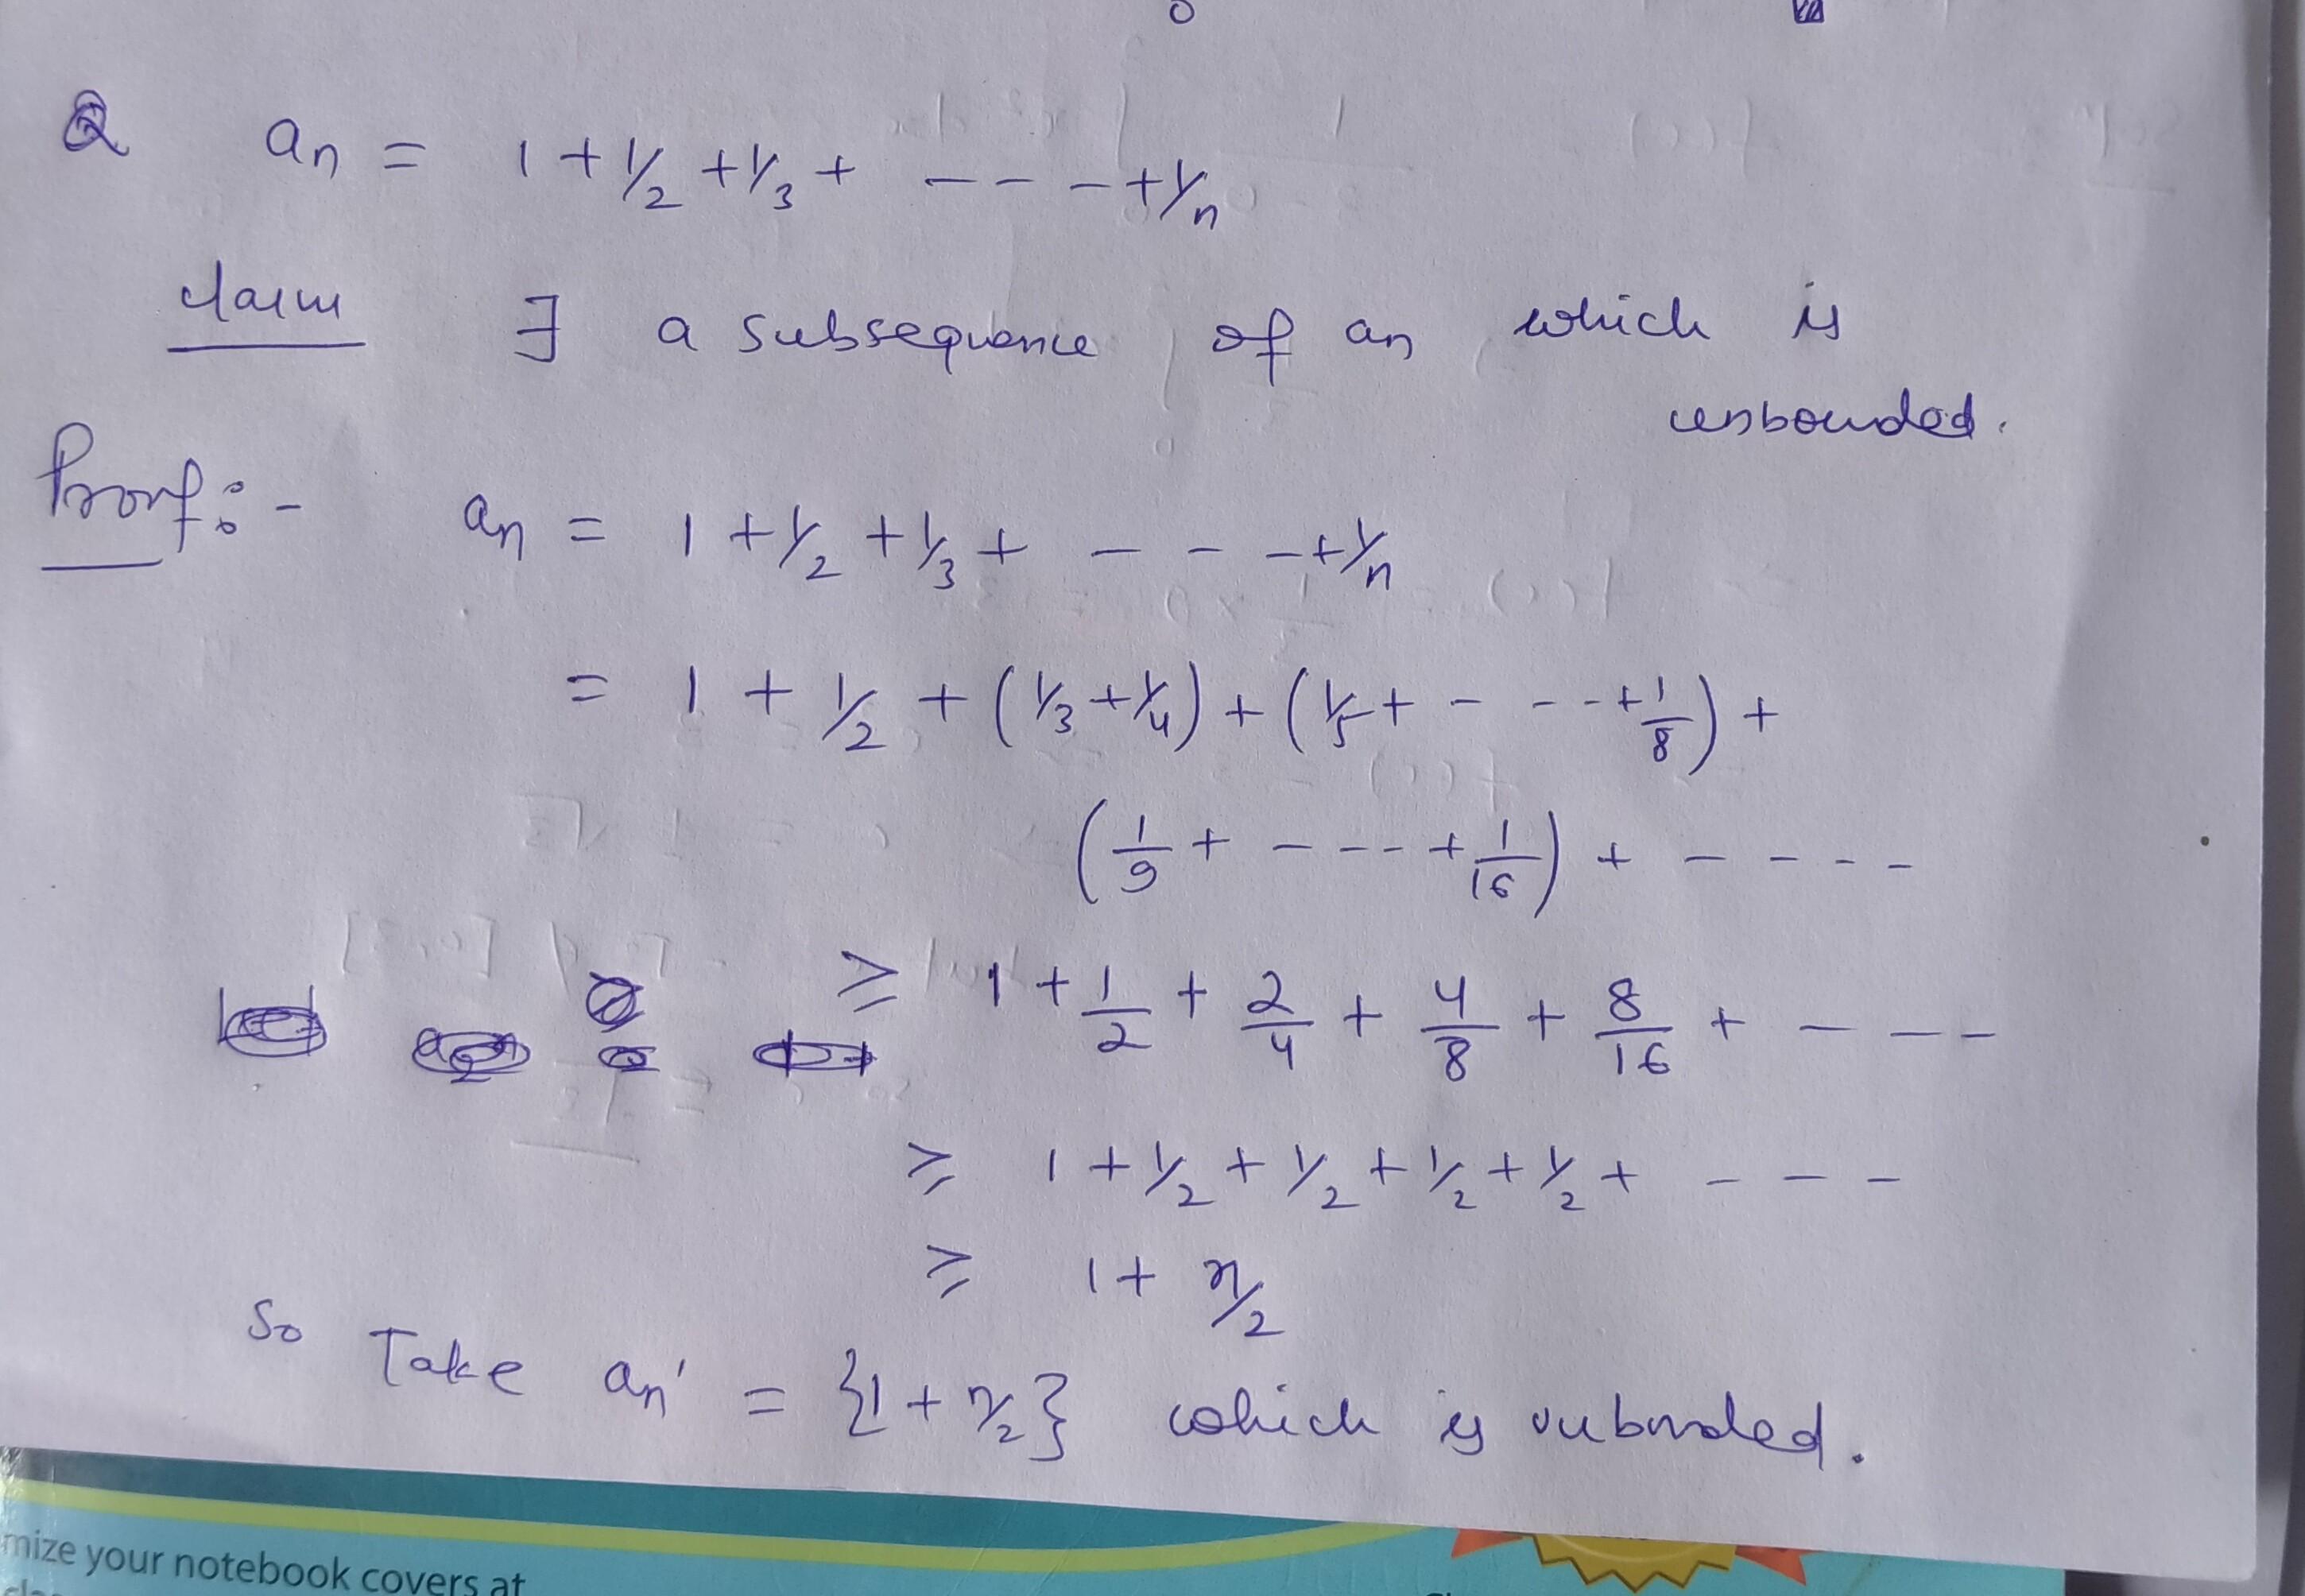 Q an = 1 + 1/2 + 1/3 + - - - + 1/n
claim ∃ a subsequence of an which is
unbounded.
Proof :- an = 1 + 1/2 + 1/3 + - - - + 1/n
= 1 + 1/2 + (1/3 + 1/4) + (1/5 + - - - + 1/8) +
(1/9 + - - - - + 1/16) + - - - -
≥ 1 + 1/2 + 2/4 + 4/8 + 8/16 + - - -
≥ 1 + 1/2 + 1/2 + 1/2 + 1/2 + - - -
≥ 1 + n/2
So Take an' = {1 + n/2} which is unbounded.
mize your notebook covers at